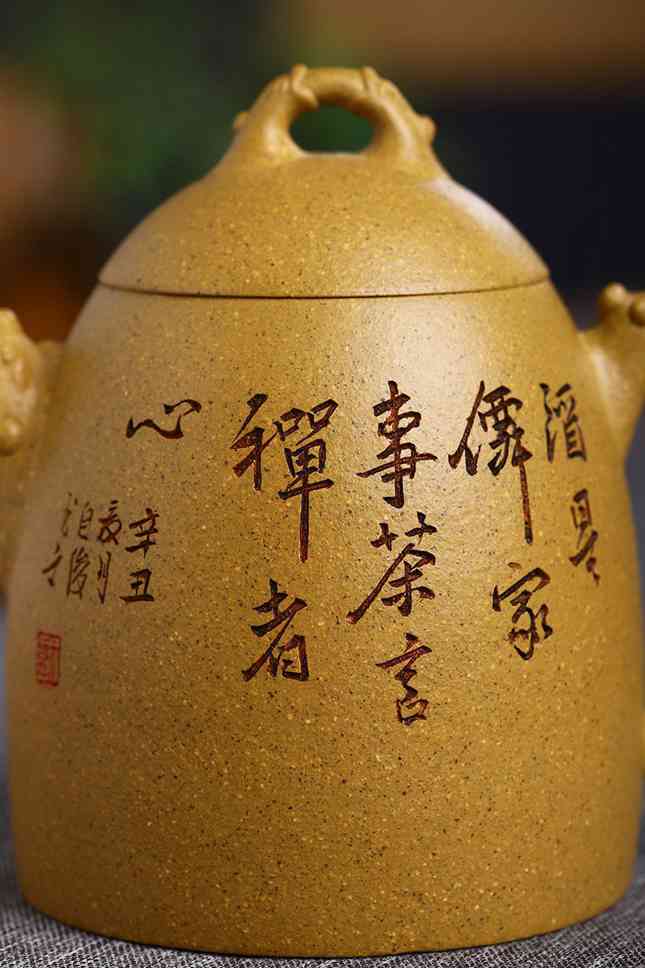 酒是
儒家
事茶言
禪者
心
辛丑
夏月